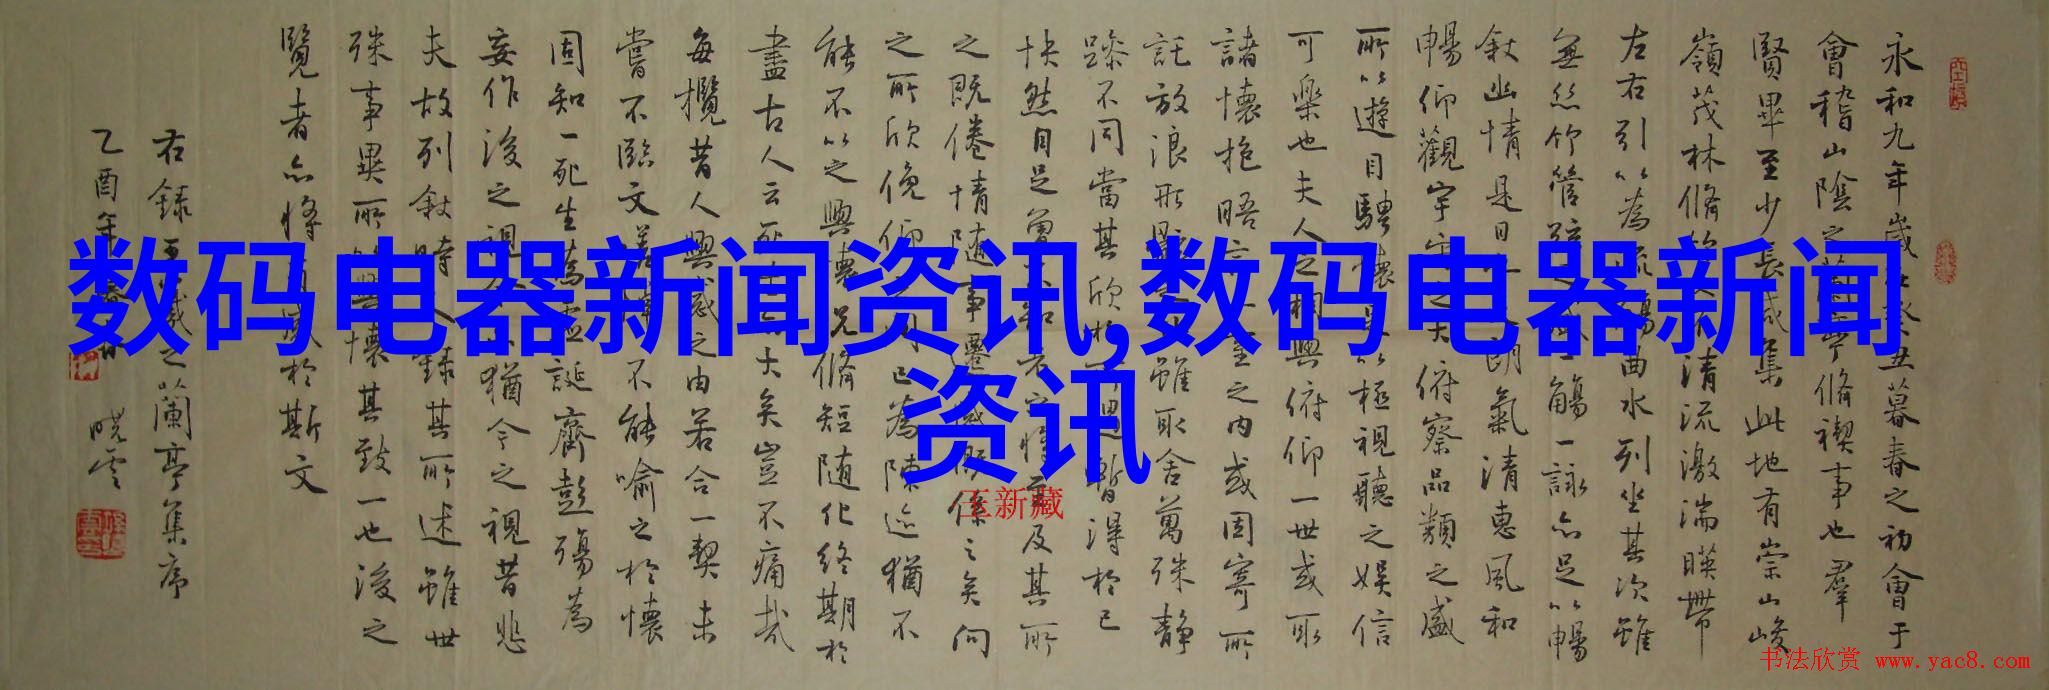 数码电器新闻资讯,数码电器新闻
资讯
永和九年歲在癸丑暮春之初會于
會稽山陰之蘭亭脩禊事也羣
賢畢至少長咸集此地有崇山峻
嶺茂林脩竹又有清流激湍暎帶
左右引以為流觴曲水列坐其次雖
無絲竹管弦之盛一觴一詠亦足以暢
敘幽情是日也天朗氣清惠風和
暢仰觀宇宙之大俯察品類之盛
所以遊目騁懷足以極視聽之娛信
可樂也夫人之相與俯仰一世或取
諸懷抱晤言一室之內或因寄所
託放浪形骸之外雖取舍萬殊靜
躁不同當其欣於所遇暫得於己
快然自足曾不知老之將至及其所
之既倦情隨事遷感慨係之矣向
之所欣俛仰之間已為陳迹猶不
能不以之興懷况脩短隨化終期於
盡古人云死生亦大矣豈不痛哉
每攬昔人興感之由若合一契未
嘗不臨文嗟悼不能喻之於懷
固知一死生為虛誕齊彭殤為
妄作後之視今亦猶今之視昔悲
夫故列敘時人錄其所述雖世
殊事異所以興懷其致一也後之
覽者亦將有感於斯文
右錄王羲之蘭亭集序
乙酉年春日 曉雲
王新藏
书法欣赏 www.yac8.com